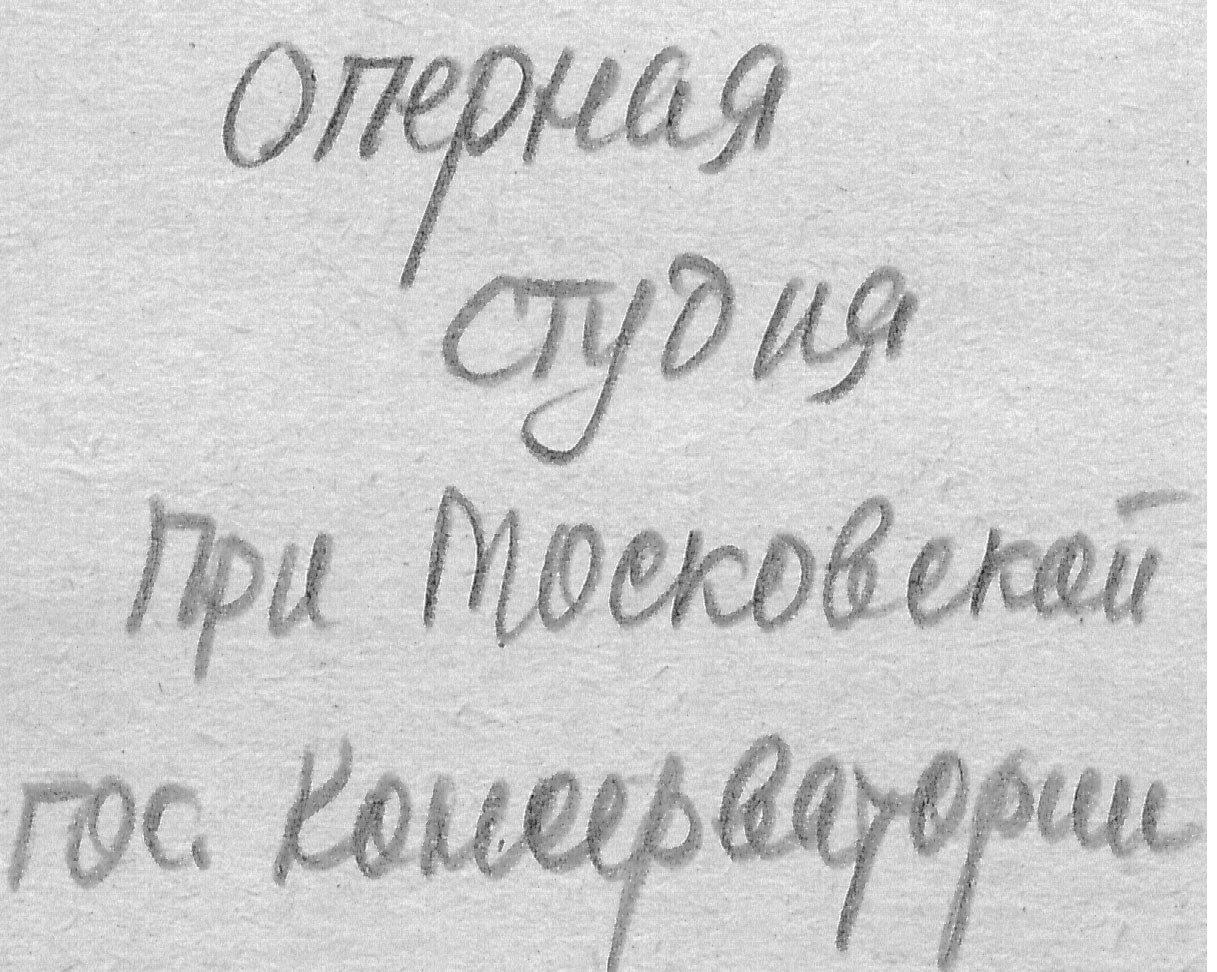 Оперная
студия
При Московской
гос. Консерватории